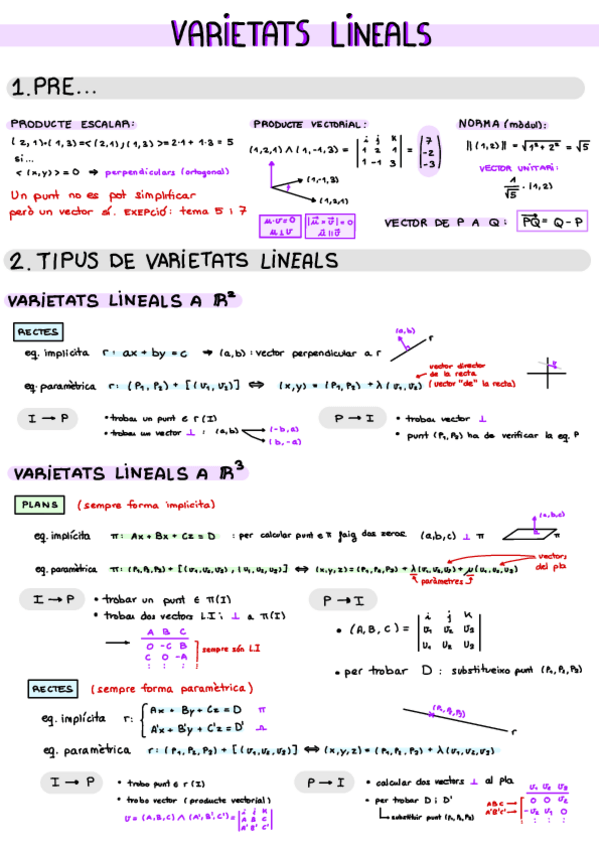 VARIETATS LINEALS
1. PRE...
PRODUCTE ESCALAR:
(2,1)·(1,3) = <(2,1),(1,3)> = 2·1 + 1·3 = 5
si...
<(x,y)> = 0 → perpendiculars (ortogonal)
Un punt no es pot simplificar
però un vector sí. EXEPCIÓ: tema 5 i 7
PRODUCTE VECTORIAL:
(1,2,1) ∧ (1,-1,3) = | i j k | 1 2 1 | 1 -1 3 | = | 7 | -2 | -3 |
(1,-1,3)
(1,2,1)
u·v = 0
u ⊥ v
|u × v| = 0
u || v
NORMA (mòdul):
||(1,2)|| = √1² + 2² = √5
VECTOR UNITARI:
1/√5 · (1,2)
VECTOR DE P A Q: PQ = Q - P
2. TIPUS DE VARIETATS LINEALS
VARIETATS LINEALS A R²
RECTES
eq. implícita r: ax + by = c → (a,b): vector perpendicular a r
(a,b)
r
eq. paramètrica r: (P1,P2) + [(v1,v2)] ⇔ (x,y) = (P1,P2) + λ(v1,v2)
vector director
de la recta
(vector "de" la recta)
I → P
• trobar un punt ∈ r (I)
• trobar un vector ⊥ : (a,b)
(-b,a)
(b,-a)
P → I
• trobar vector ⊥
• punt (P1,P2) ha de verificar la eq. P
VARIETATS LINEALS A R³
PLANS (sempre forma implícita)
eq. implícita π: Ax + Bx + Cz = D : per calcular punt ∈ π faig dos zeros (a,b,c) ⊥ π
(a,b,c)
π
eq. paramètrica π: (P1,P2,P3) + [(v1,v2,v3), (u1,u2,u3)] ⇔ (x,y,z) = (P1,P2,P3) + λ(v1,v2,v3) + μ(u1,u2,u3)
vectors
del pla
paràmetres
I → P
• trobar un punt ∈ π(I)
• trobar dos vectors L.I i ⊥ a π(I)
A B C
0 -C B
C 0 -A
: : :
sempre són L.I
P → I
• (A,B,C) = | i j k | v1 v2 v3 | u1 u2 u3 |
• per trobar D : substitueixo punt (P1,P2,P3)
RECTES (sempre forma paramètrica)
eq. implícita r: { Ax + By + Cz = D π
A'x + B'y + C'z = D'
(P1,P2,P3)
r
eq. paramètrica r: (P1,P2,P3) + [(v1,v2,v3)] ⇔ (x,y,z) = (P1,P2,P3) + λ(v1,v2,v3)
I → P
• trobo punt ∈ r (I)
• trobo vector (producte vectorial)
v = (A,B,C) ∧ (A',B',C') = | i j k | A B C | A' B' C' |
P → I
• calcular dos vectors ⊥ al pla
• per trobar D i D'
substituir punt (P1,P2,P3)
v1 v2 v3
A B C → 0 0 v2
A'B'C' → -v2 v1 0
: : :